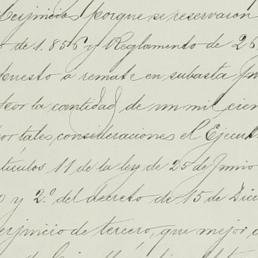 perjuicio, porque se reservaron
o de 1.856 y Reglamento de 26
puesto a remate en subasta
por la cantidad de un mil cien
por tales consideraciones el Ejecu
tículos 11 de la ley de 25 de Junio
o y 2.º del decreto de 15 de Dici
perjuicio de tercero, que mejor d